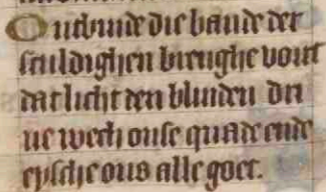 Ontbinde die bande der
sculdighen brenghe vout
dat licht den blinden dri
ue wech onse quade ende
eysche ons alle goet.